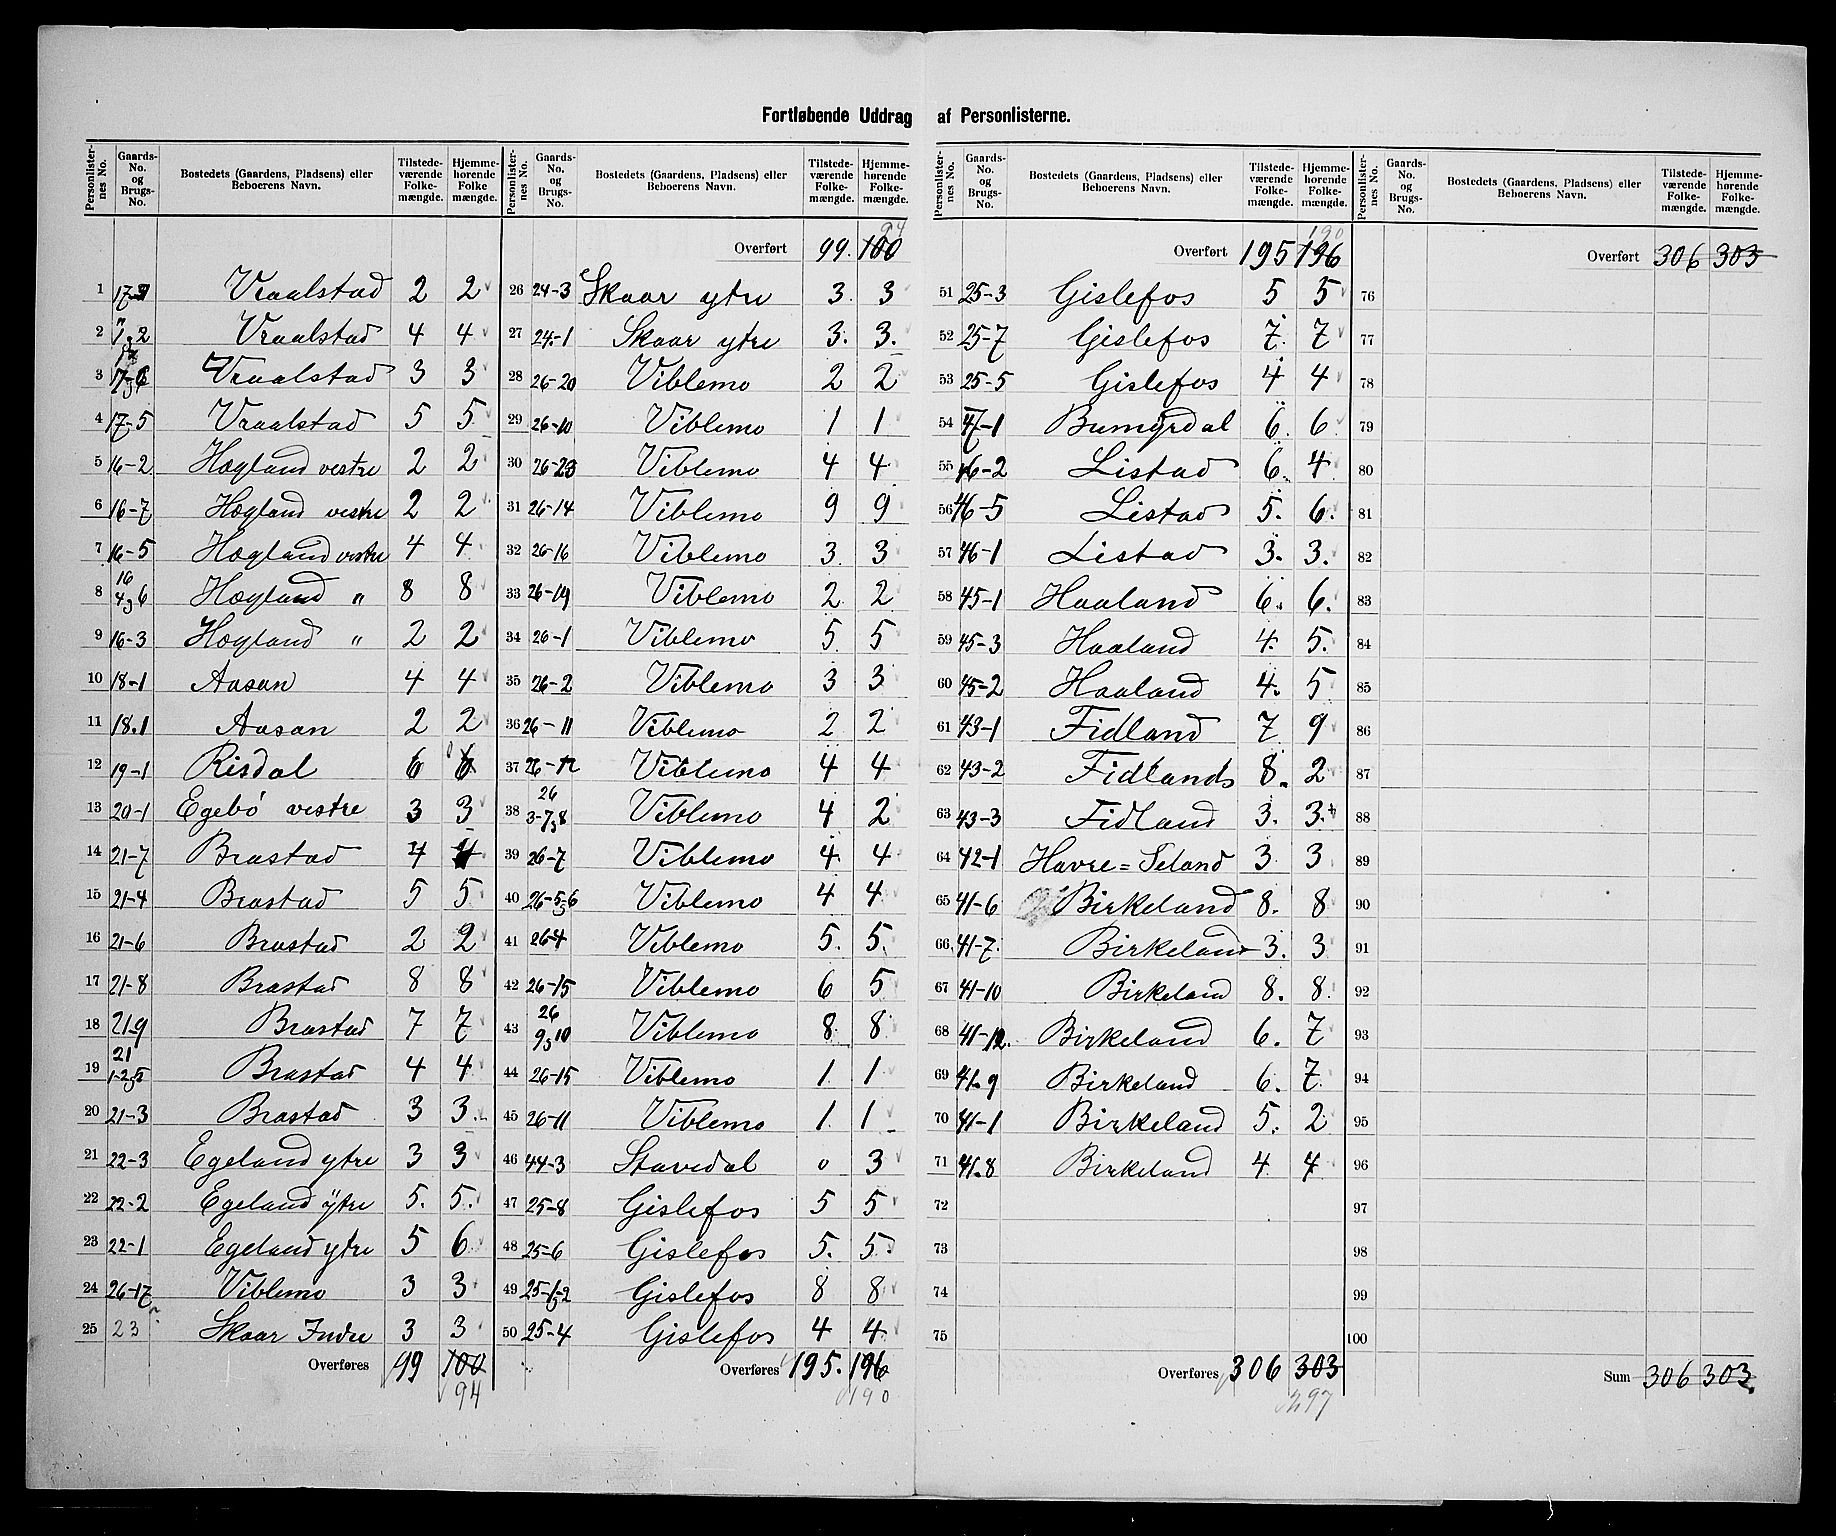 Fortløbende Uddrag af Personlisterne.
Personlister-nes No. Gaards-No. og Brugs-No. Bostedets (Gaardens, Pladsens) eller Beboerens Navn. Tilstede-værende Folke-mængde. Hjemme-hørende Folke mængde.
1 17- Vraalstad 2 2
2 2 Vraalstad 4 4
3 Vraalstad 3 3
4 17-5 Vraalstad 5 5
5 16-2 Høgland vestre 2 2
6 16-7 Høgland vestre 2 2
7 16-5 Høgland vestre 4 4
8 16 4,6 Høgland " 8 8
9 16-3 Høgland " 2 2
10 18-1 Aasan 4 4
11 18.1 Aasan 2 2
12 19-1 Risdal 6 6
13 20-1 Egebø vestre 3 3
14 21-7 Brastad 4 4
15 21-4 Brastad 5 5
16 21-6 Brastad 2 2
17 21-8 Brastad 8 8
18 21-9 Brastad 7 7
19 21 1-2,5 Brastad 4 4
20 21-3 Brastad 3 3
21 22-3 Egeland ytre 3 3
22 22-2 Egeland ytre 5. 5.
23 22-1 Egeland ytre 5 6
24 26-17 Viblemo 3 3
25 23 Skaar Indre 3 3
Overføres 99 100
94
Personlister-nes No. Gaards-No. og Brugs-No. Bostedets (Gaardens, Pladsens) eller Beboerens Navn. Tilstede-værende Folke-mængde. Hjemme-hørende Folke-mængde.
94
Overført 99. 100
26 24-3 Skaar ytre 3. 3
27 24-1 Skaar ytre 3. 3.
28 26-20 Viblemo 2 2
29 26-10 Viblemo 1 1
30 26-23 Viblemo 4 4
31 26-14 Viblemo 9 9
32 26-16 Viblemo 3 3
33 26-19 Viblemo 2 2
34 26-1 Viblemo 5 5
35 26-2 Viblemo 3 3
36 26-11 Viblemo 2 2
37 26-12 Viblemo 4 4
38 26 3-7,8 Viblemo 4 2
39 26-7 Viblemo 4. 4
40 26-5,6 Viblemo 4 4
41 26-4 Viblemo 5. 5.
42 26-15 Viblemo 6 5
43 26 9,10 Viblemo 8 8
44 26-15 Viblemo 1 1
45 26-11 Viblemo 1. 1
46 44-3 Stavedal 0 3
47 25-8 Gislefos 5 5
48 25-6 Gislefos 5. 5.
49 25-1,2 Gislefos 8 8
50 25-4 Gislefos 4 4
Overføres 195. 196
190
Personlister-nes No. Gaards-No. og Brugs-No. Bostedets (Gaardens, Pladsens) eller Beboerens Navn. Tilstede-værende Folke-mængde. Hjemme-hørende Folke-mængde.
190
Overført 195 196
51 25-3 Gislefos 5 5
52 25-7 Gislefos 7. 7
53 25-5 Gislefos 4 4
54 47-1 Bumyrdal 6. 6
55 46-2 Listad 6. 4
56 46-5 Listad 5. 6.
57 46-1 Listad 3. 3.
58 45-1 Haaland 6. 6.
59 45-3 Haaland 4. 5.
60 45-2 Haaland 4. 5
61 43-1 Fidland 7. 9
62 43-2 Fidland 8. 2
63 43-3 Fidland 3. 3.
64 42-1 Havre=Seland 3 3
65 41-6 Birkeland 8. 8
66 41-7. Birkeland 3. 3
67 41-10 Birkeland 8. 8.
68 41-12. Birkeland 6. 7
69 41.9 Birkeland 6. 7.
70 41-1 Birkeland 5. 2
71 41.8 Birkeland 4 4
72
73
74
75
Overføres 306 303
297
Personlister-nes No. Gaards-No. og Brugs-No. Bostedets (Gaardens, Pladsens) eller Beboerens Navn. Tilstede-værende Folke-mængde. Hjemme-hørende Folke-mængde.
Overført 306 303
76
77
78
79
80
81
82
83
84
85
86
87
88
89
90
91
92
93
94
95
96
97
98
99
100
Sum 306 303.